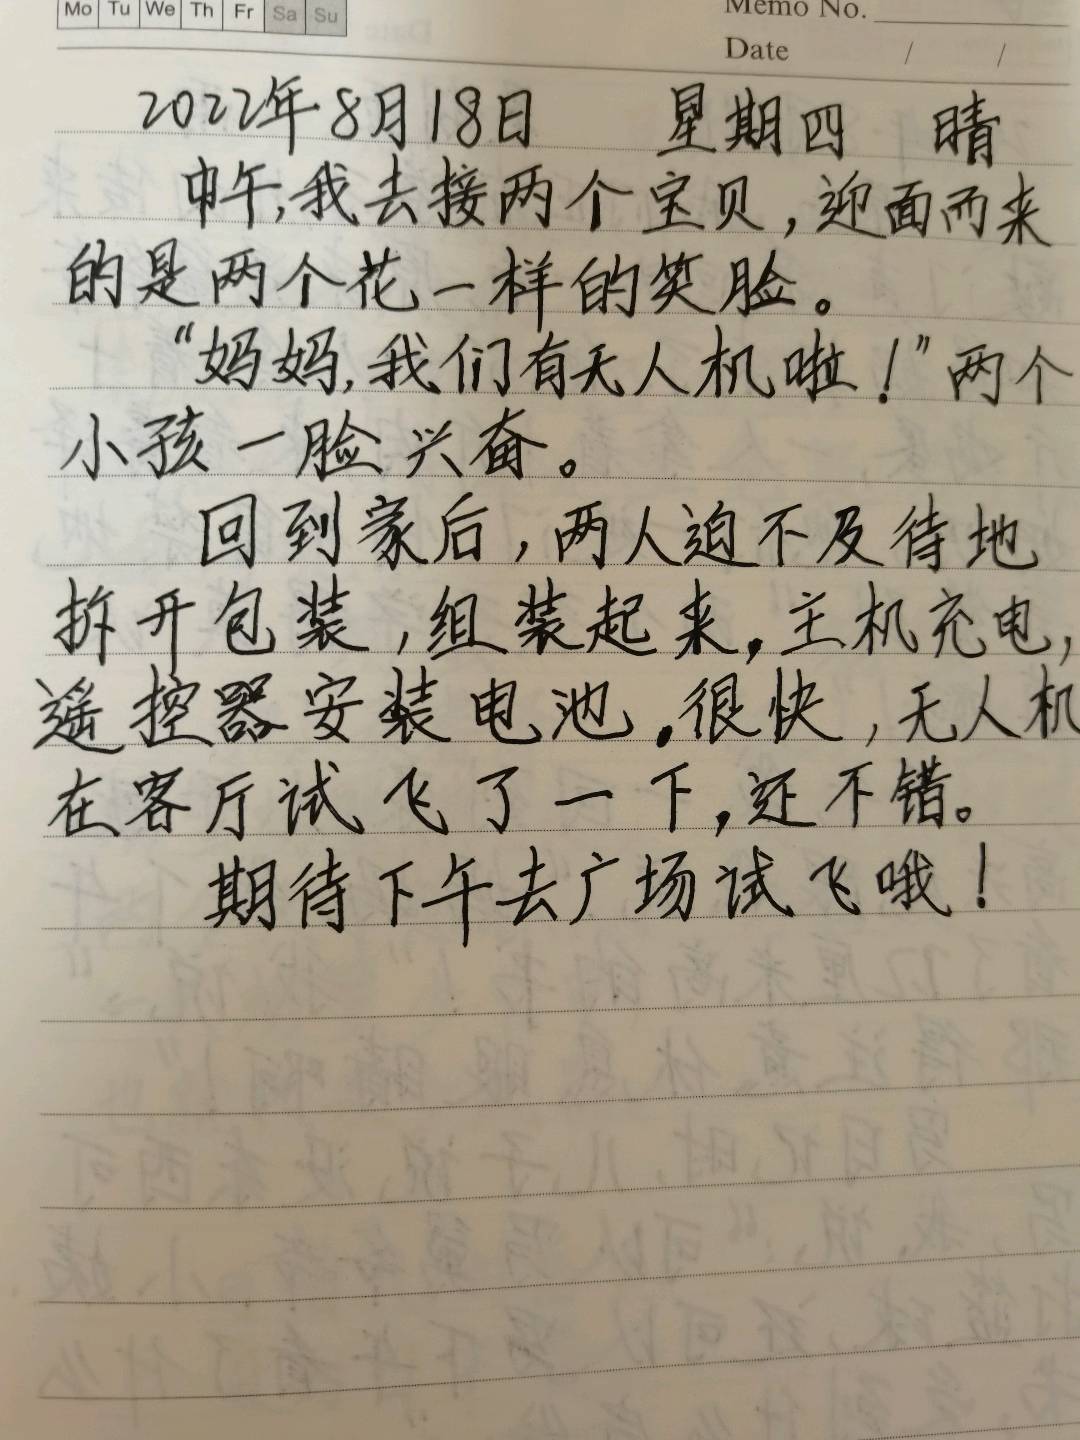 Mo Tu We Th Fr Sa Su
Memo No.
Date / /
2022年8月18日 星期四 晴
中午,我去接两个宝贝,迎面而来
的是两个花一样的笑脸。
“妈妈,我们有无人机啦!”两个
小孩一脸兴奋。
回到家后,两人迫不及待地
拆开包装,组装起来,主机充电,
遥控器安装电池.很快,无人机
在客厅试飞了一下,还不错。
期待下午去广场试飞哦!